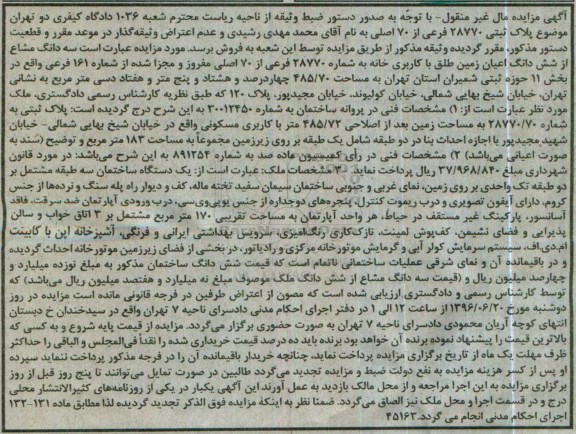 آگهی مزایده مال غیر منقول- با توجه به صدور دستور ضبط وثیقه از ناحیه ریاست محترم شعبه ۱۰۳۶ دادگاه کیفری دو تهران
موضوع پلاک ثبتی ۲۸۷۷۰ فرعی از ۷۰ اصلی به نام آقای محمد مهدی رشیدی و عدم اعتراض وثیقه‌گذار در موعد مقرر و قطعیت
دستور مذکور، مقرر گردیده وثیقه مذکور از طریق مزایده توسط این شعبه به فروش برسد. مورد مزایده عبارت است سه دانگ مشاع
از شش دانگ اعیان زمین طلق با کاربری خانه به شماره ۲۸۷۷۰ فرعی از ۷۰ اصلی مفروز و مجزا شده از شماره ۱۶۱ فرعی واقع در
بخش ۱۱ حوزه ثبتی شمیران استان تهران به مساحت ۴۸۵/۷۰ چهارصد و هشتاد و پنج متر و هفتاد دسی متر مربع به نشانی
تهران، خیابان شیخ بهایی شمالی، خیابان کولیوند، خیابان مجیدپور، پلاک ۱۲۰ که طبق نظریه کارشناس رسمی دادگستری، ملک
مورد نظر عبارت است از: ۱) مشخصات فنی در پروانه ساختمان به شماره ۳۰۰۱۲۴۵۰ به این شرح درج گردیده است: پلاک ثبتی به
شماره ۲۸۷۷۰/۷۰ به مساحت زمین بعد از اصلاحی ۴۸۵/۷۲ متر با کاربری مسکونی واقع در خیابان شیخ بهایی شمالی- خیابان
شهید مجیدپور با اجازه احداث بنا در دو طبقه شامل یک طبقه بر روی زیرزمین مجموعاً به مساحت ۱۸۳ متر مربع و توضیح (سند به
صورت اعیانی می‌باشد) ۲) مشخصات فنی در رأی کمیسیون ماده صد به شماره ۸۹۱۲۵۴ به این شرح می‌باشد: در مورد قانون
شهرداری مبلغ ۳۷/۹۶۸/۸۴۰ ریال پرداخت نماید. ۳) مشخصات ملک: عبارت است از: یک دستگاه ساختمان سه طبقه مشتمل بر
دو طبقه تک واحدی بر روی زمین، نمای غربی و جنوبی ساختمان سیمان سفید تخته ماله، کف و دیوار راه پله سنگ و نرده‌ها از جنس
کروم، دارای آیفون تصویری و درب ریموت کنترل، پنجره‌های دوجداره از جنس یو‌پی‌وی‌سی، درب ورودی آپارتمان ضد سرقت، فاقد
آسانسور، پارکینگ غیر مستقف در حیاط، هر واحد آپارتمان به مساحت تقریبی ۱۷۰ متر مربع مشتمل بر ۳ اتاق خواب و سالن
پذیرایی و فضای نشیمن، کف‌پوش لمینت، نازک‌کاری رنگ‌آمیزی، سرویس بهداشتی ایرانی و فرنگی، آشپزخانه اپن با کابینت
ام.دی‌اف، سیستم سرمایش کولر آبی و گرمایش موتورخانه مرکزی و رادیاتور، در بخشی از فضای زیرزمین موتورخانه احداث گردیده
و در باقیمانده آن و نمای شرقی عملیات ساختمانی ناتمام است که قیمت شش دانگ ساختمان مذکور به مبلغ نوزده میلیارد و
چهارصد میلیون ریال و (قیمت سه دانگ مشاع از شش دانگ ملک موصوف مبلغ نه میلیارد و هفتصد میلیون ریال می‌باشد) که
توسط کارشناس رسمی و دادگستری ارزیابی شده است که مصون از اعتراض طرفین در فرجه قانونی مانده است مزایده در روز
دوشنبه مورخ ۱۳۹۶/۰۶/۲۰ از ساعت ۱۲ الی ۱ در دفتر اجرای احکام مدنی دادسرای ناحیه ۷ تهران واقع در سیدخندان خ دبستان
انتهای کوچه آریان محمودی دادسرای ناحیه ۷ تهران به صورت حضوری برگزار می‌گردد. مزایده از قیمت پایه شروع و به کسی که
بالاترین قیمت را پیشنهاد نموده برنده آن خواهد بود برنده باید ده درصد قیمت خریداری شده را نقداً فی‌المجلس و الباقی را حداکثر
ظرف مهلت یک ماه از تاریخ برگزاری مزایده پرداخت نماید، چنانچه خریدار باقیمانده آن را در فرجه مذکور پرداخت ننماید سپرده
او پس از کسر هزینه مزایده به نفع دولت ضبط و مزایده تجدید می‌گردد طالبین در صورت تمایل می‌توانند تا پنج روز قبل از روز
برگزاری مزایده به این اجرا مراجعه و از محل مالک بازدید به عمل آورند این آگهی یکبار در یکی از روزنامه‌های کثیرالانتشار محلی
درج و در قسمت اجرا و محل ملک نیز الصاق می‌گردد. ضمنا نظر به اینکه مزایده فوق الذکر تجدید گردیده لذا مطابق ماده ۱۳۱-۱۳۲
اجرای احکام مدنی انجام می گردد. ۴۵۱۶۳